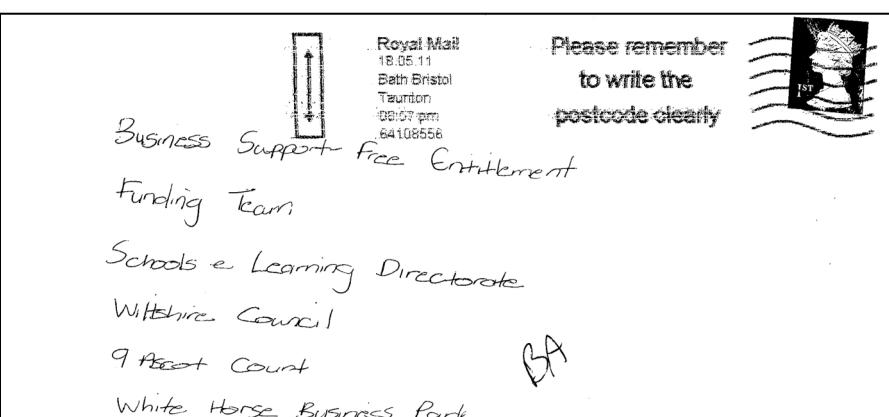 Royal Mail
18.05.11
Bath Bristol
Taunton
08:07 pm
64108556
Please remember
to write the
postcode clearly
1ST
Business Support Free Entitlement
Funding Team
Schools e Learning Directorate
Wiltshire Council
9 Ascot Court
BA
White Horse Business Park